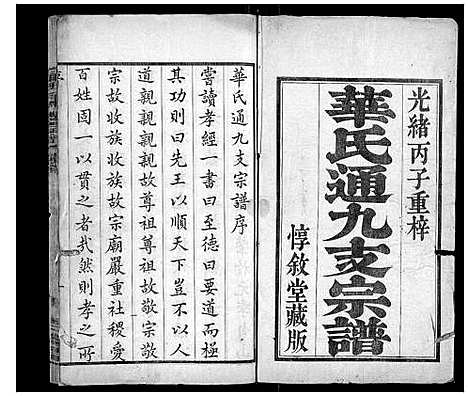 光緒丙子重梓
華氏通九支宗譜
惇敘堂藏版
華氏通九支宗譜序
嘗讀孝經一書曰至德曰要道而極
其功則曰先王以順天下豈不以人
道親親親親故尊祖尊祖故敬宗敬
宗故收族收族故宗廟嚴重社稷愛
百姓固一以貫之者哉然則孝之所